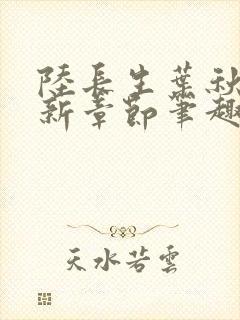 陸長生葉秋
新章節筆趣
天水若雲